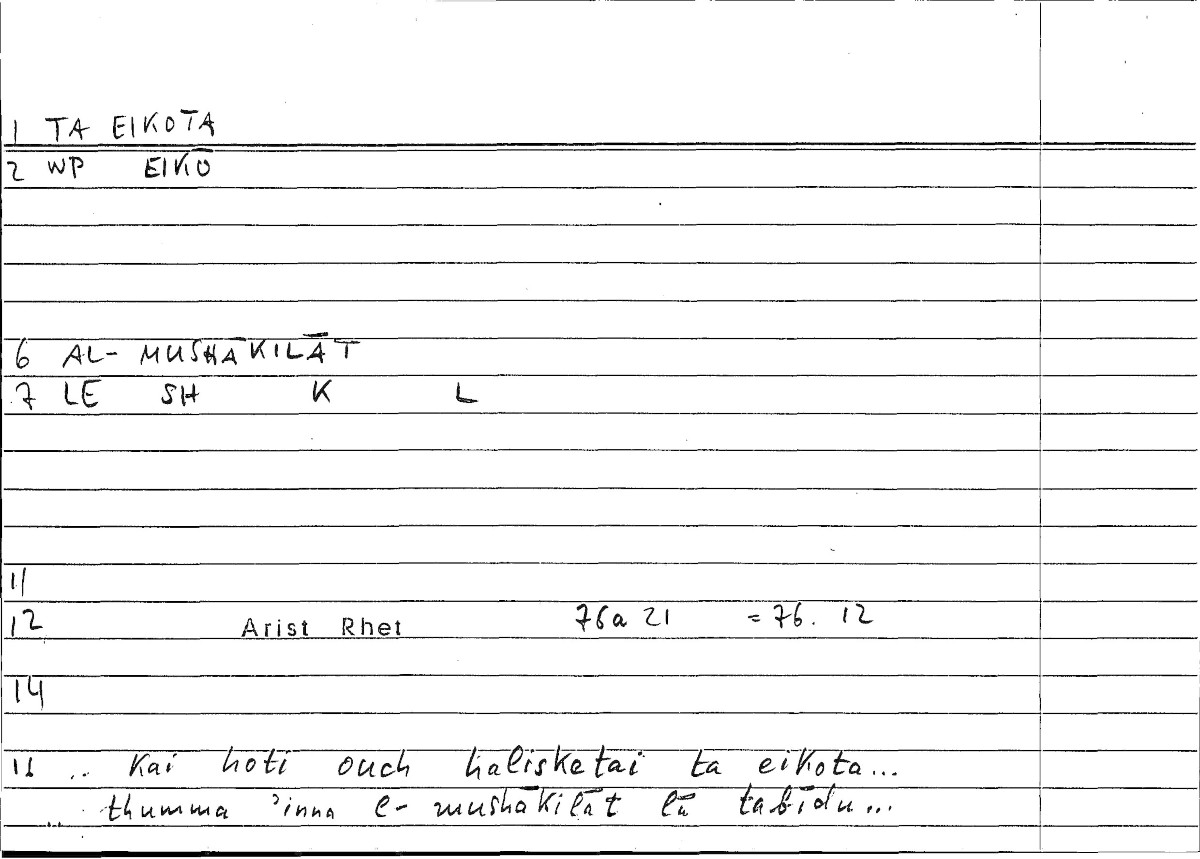 1 TA EIKOTA
2 WP EIKO
6 AL- MUSHĀKILĀT
7 LE SH K L
11
12 Arist Rhet 76a 21 = 76. 12
14
.. kai hoti ouch halisketai ta eikota...
.. thumma ʾinna l- mushākilāt lā tabīdu...